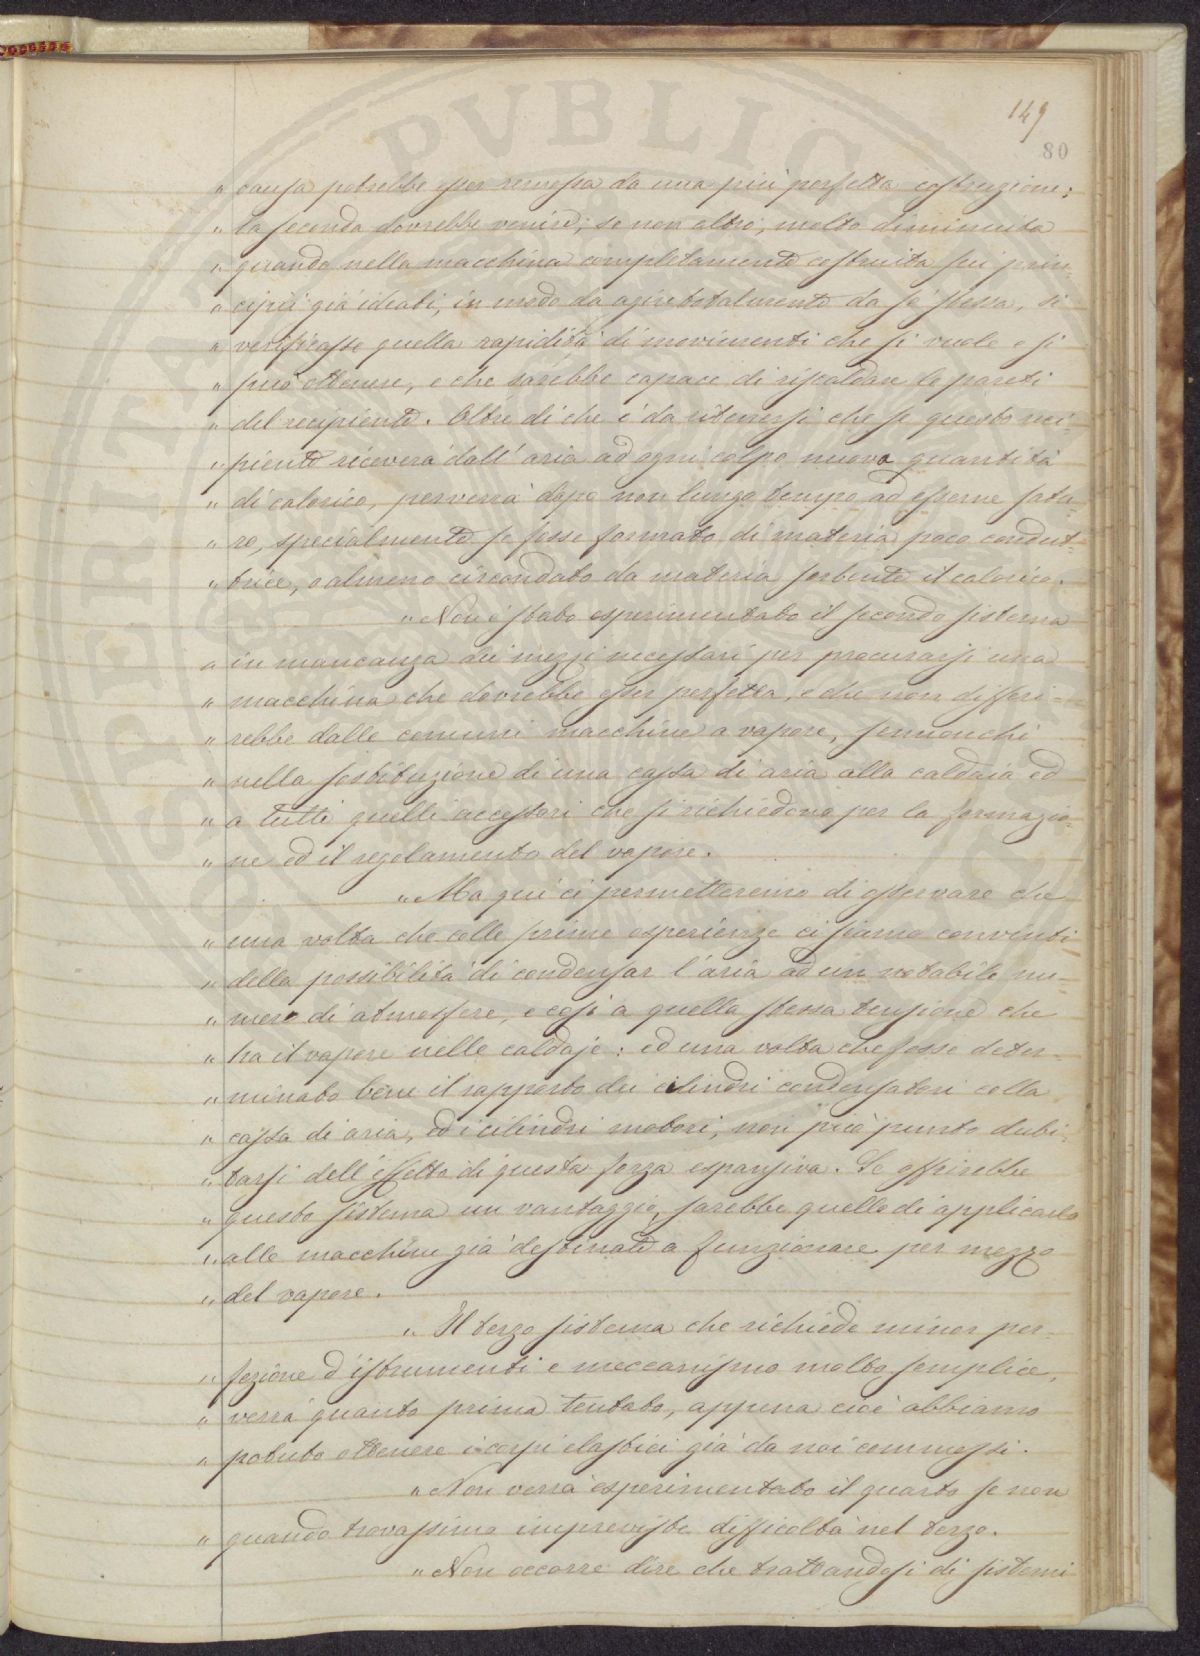 149
80
„ causa potrebbe esser remossa da una più perfetta costruzione;
„ la seconda dovrebbe venire, se non altro, molto diminuita
„ quando nella macchina completamente costruita sui prin-
„ cipii già ideati, in modo da agire totalmente da se stessa, si
„ verificasse quella rapidità di movimenti che si vuole e si
„ può ottenere, e che sarebbe capace di riscaldare le pareti
„ del recipiente. Oltre di che è da ritenersi che se questo reci-
„ piente riceverà dall'aria ad ogni colpo nuova quantità
„ di calorico, perverrà dopo non lungo tempo ad esserne satu-
„ ro, specialmente se fosse formato di materia poco condut-
„ trice, o almeno circondato da materia serbente il calorico.
„ Non è stato esperimentato il secondo sistema
„ in mancanza dei mezzi necessari per procurarsi una
„ macchina che dovrebbe esser perfetta, e che non differi-
„ rebbe dalle comuni macchine a vapore, sennonchè
„ nella sostituzione di una cassa di aria alla caldaia ed
„ a tutti quelli accessori che si richiedono per la formazio-
„ ne ed il regolamento del vapore.
„ Ma qui ci permetteremo di osservare che
„ una volta che colle prime esperienze ci siamo convinti
„ della possibilità di condensar l'aria ad un notabile nu-
„ mero di atmosfere, e così a quella stessa tensione che
„ ha il vapore nelle caldaje: ed una volta che fosse deter-
„ minato bene il rapporto dei cilindri condensatori colla
„ cassa di aria, ed i cilindri motori, non può punto dubi-
„ tarsi dell'effetto di questa forza espansiva. Se offrirebbe
„ questo sistema un vantaggio, sarebbe quello di applicarlo
„ alle macchine già destinate a funzionare per mezzo
„ del vapore.
„ Il terzo sistema che richiede minor per-
„ fezione d'istrumenti e meccanismo molto semplice,
„ verrà quanto prima tentato, appena cioè abbiamo
„ potuto ottenere i corpi elastici già da noi commessi.
„ Non verrà esperimentato il quarto se non
„ quando trovassimo impreviste difficoltà nel terzo.
„ Non occorre dire che trattandosi di sistemi